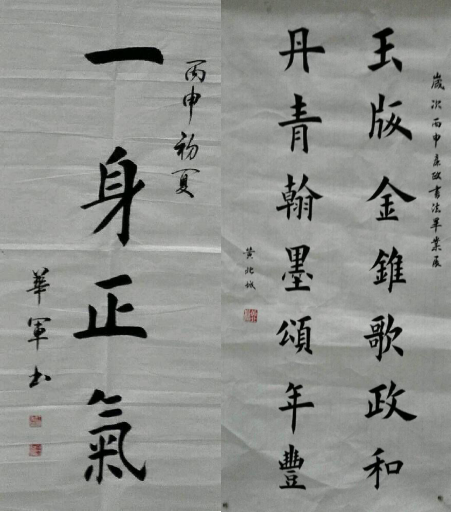 丙申初夏
一身正氣
華軍书
歲次丙申廉政書法畢業展
玉版金錐歌政和
丹青翰墨頌年豐